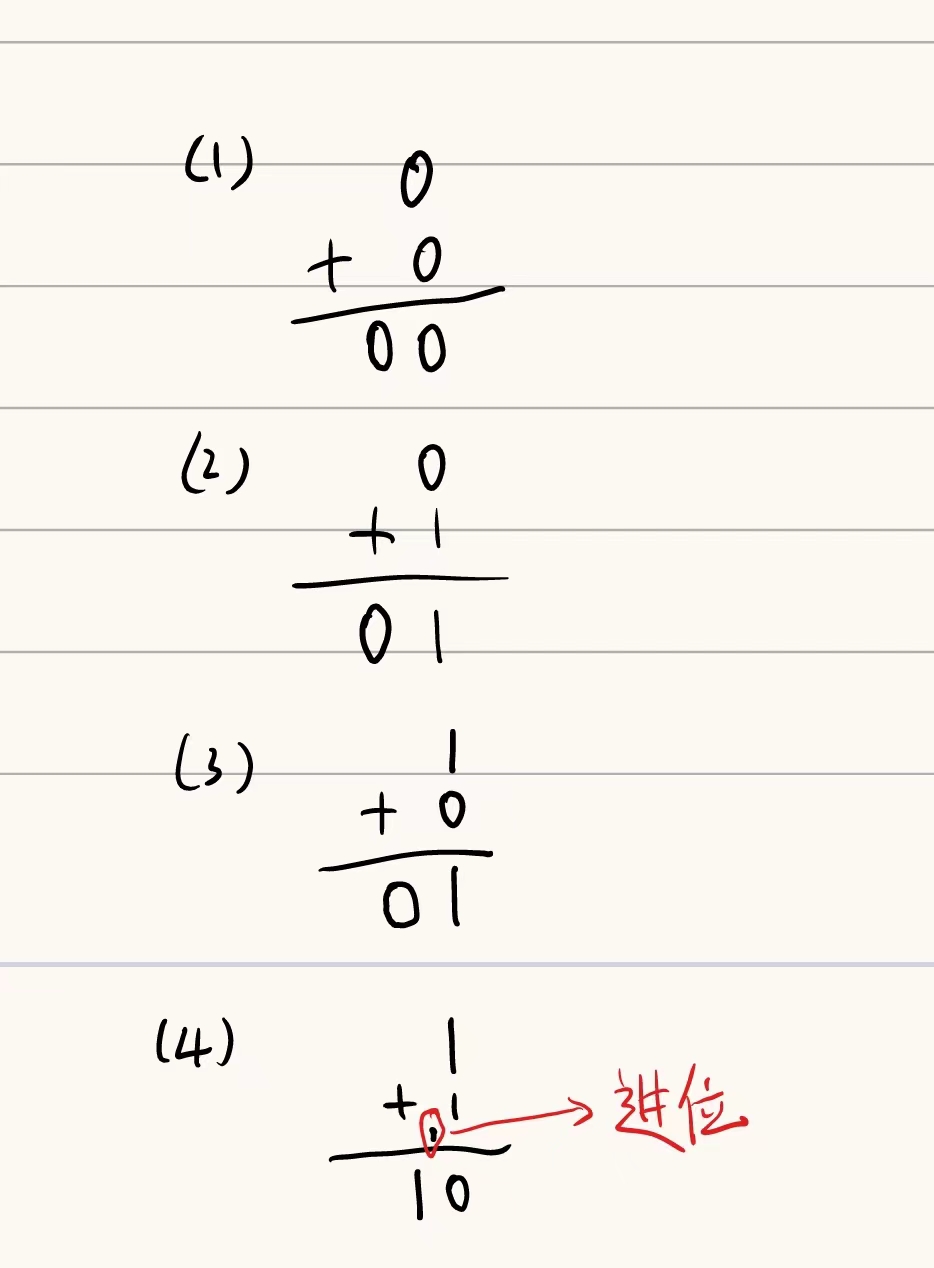 (1) 0
+ 0
00
(2) 0
+ 1
01
(3) 1
+ 0
01
(4) 1
+ 1
进位
10